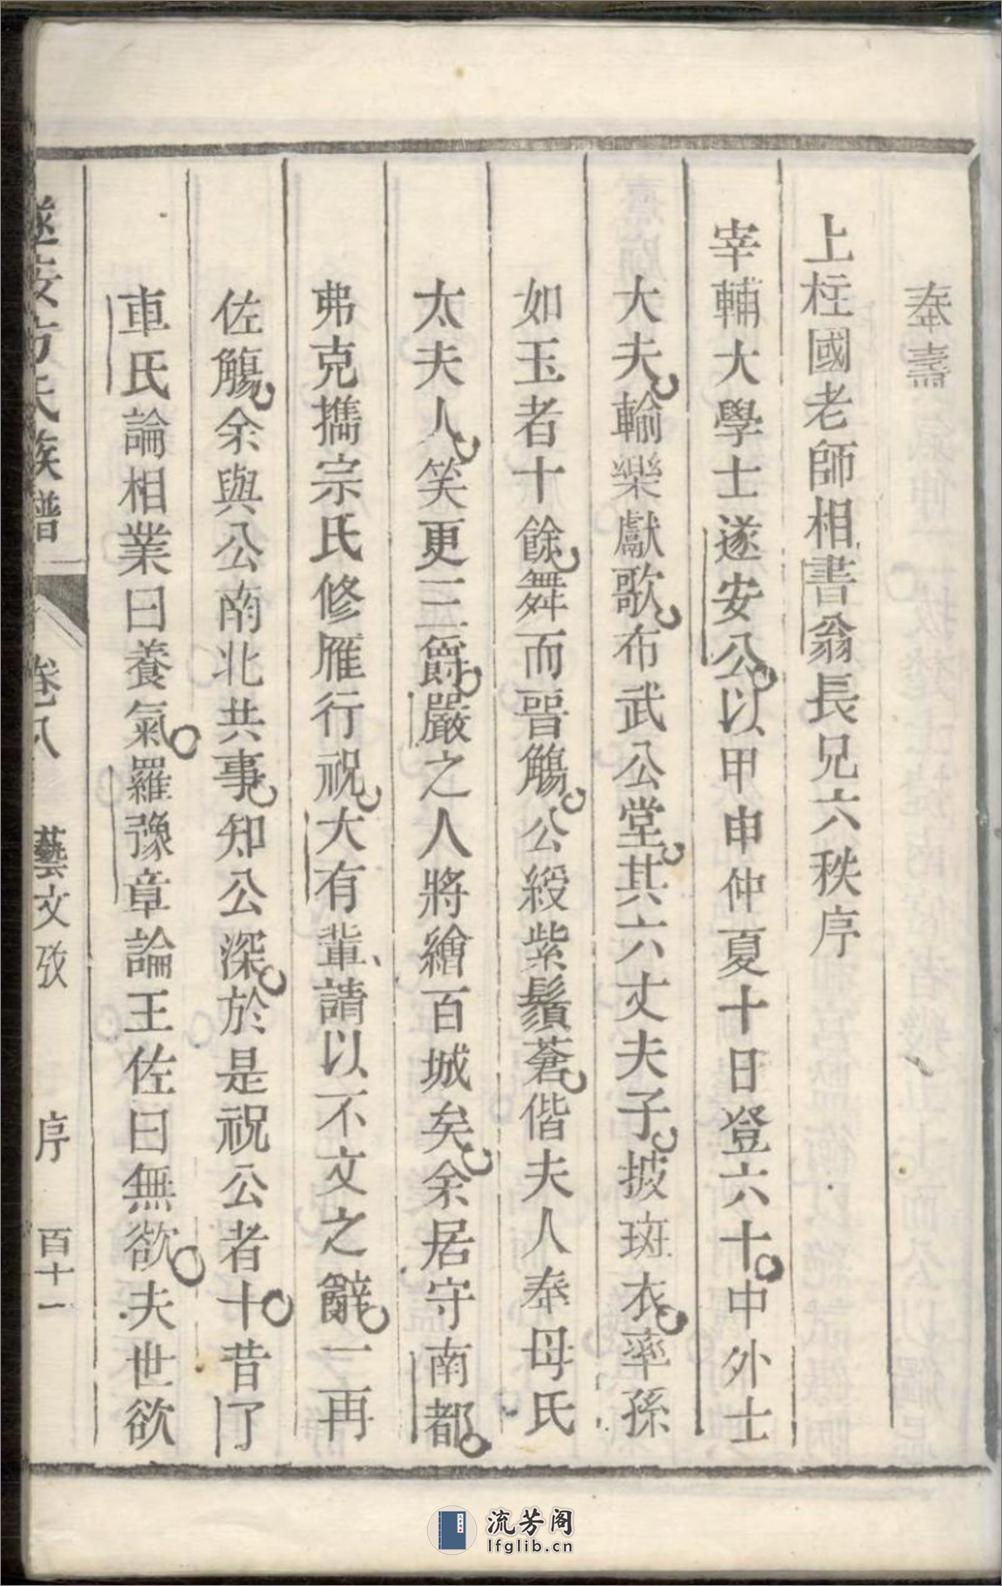 奉壽
上柱國老師相書翁長兄六秩序
宰輔大學士遂安公以甲申仲夏十日登六十中外士
大夫輸樂獻歌布武公堂其六丈夫子披斑衣率孫
如玉者十餘舞而晉觴公綬紫鬚蒼偕夫人奉母氏
太夫人笑更三爵嚴之人將繪百城矣余居守南都
弗克攜宗氏修雁行祝大有輩請以不文之辭一再
佐觴余與公南北共事知公深於是祝公者十昔了
車氏論相業曰養氣羅豫章論王佐曰無欲夫世欲
遂安方氏族譜 卷八 藝文攷 序 百十一
流芳阁
lfglib.cn